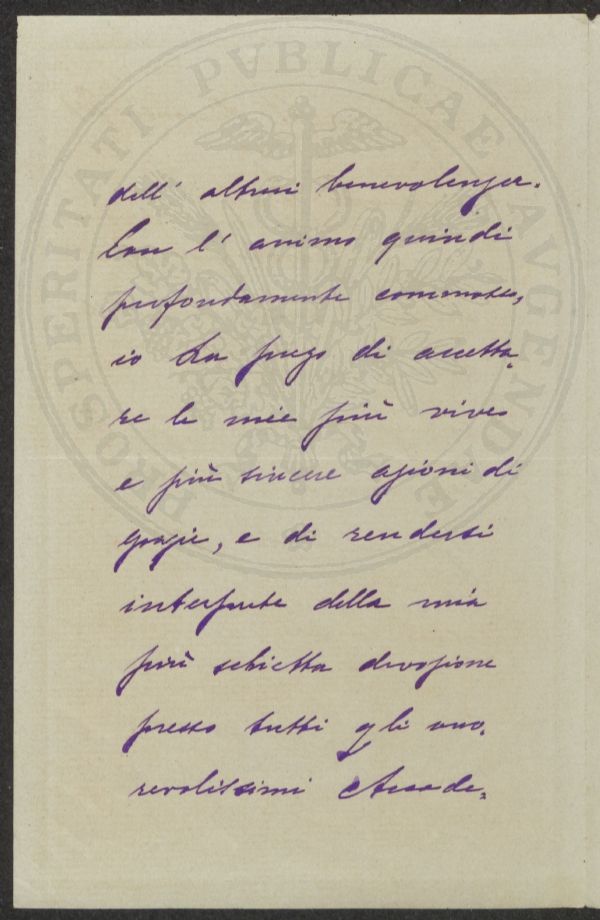 PROSPERITATI PVBLICAE AVGENDAE
dell' altrui benevolenza.
Con l' animo quindi
profondamente commosso,
io La prego di accetta
re le mie più vive
e più sincere azioni di
grazie, e di rendersi
interprete della mia
più schietta devozione
presso tutti gli ono.
revolissimi Accade=